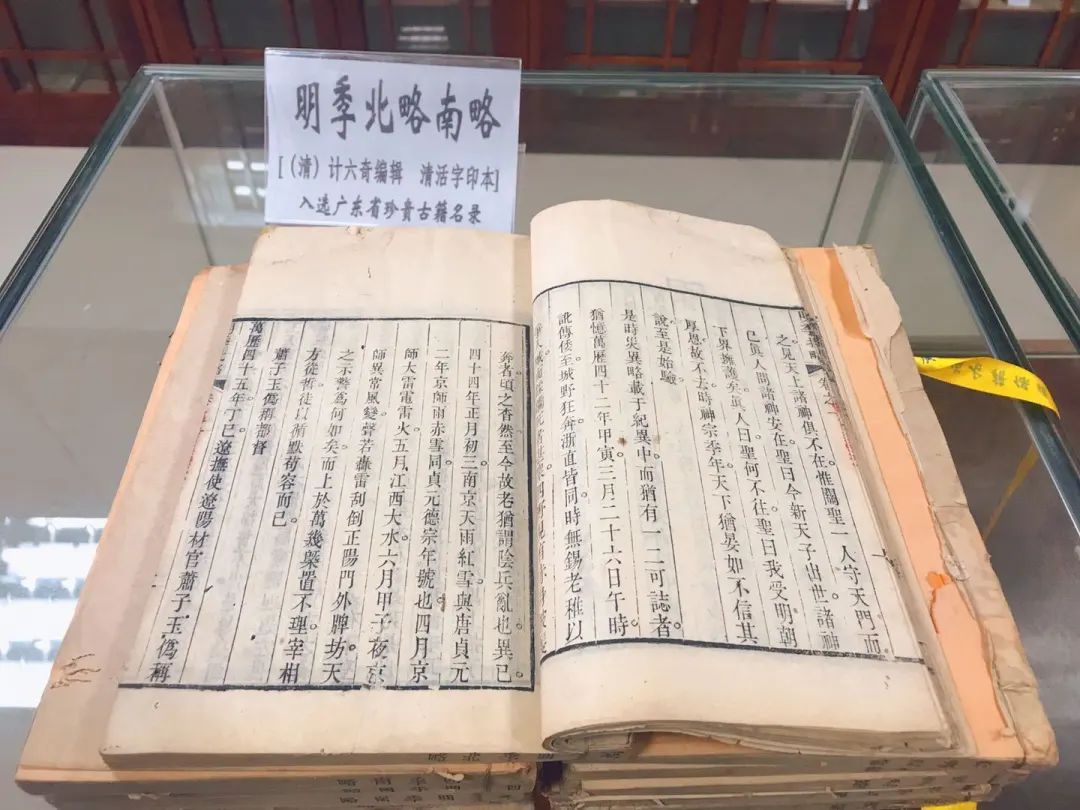 明季北略南略
[(清)计六奇编辑 清活字印本]
入选广东省珍贵古籍名录
之見天上諸神俱不在惟關聖一人守天門而
已眞人問諸神安在聖曰今新天子出世諸神
下界擁護矣眞人曰聖何不往聖曰我受明朝
厚恩故不去時神宗季年天下猶晏如不信其
說至是始驗
是時災異略載于紀異中而猶有一二可誌者
猶憶萬歷四十二年甲寅三月二十六日午時
訛傳倭至城野狂奔浙直皆同時無錫老稚以
奔者頃之杳然至今故老猶謂陰兵亂也異已
四十四年正月初三南京天雨紅雪與唐貞元
二年京師雨赤雪同貞元德宗年號也四月京
師大雷電雷火五月江西大水六月甲子夜京
師異常風變聲若轟雷刮倒正陽門外牌坊天
之示警爲何如矣而上於萬幾槩置不理宰相
方從哲徒以循默苟容而已
蕭子玉僞稱都督
萬歷四十五年丁巳遼撫使遼陽材官蕭子玉僞稱